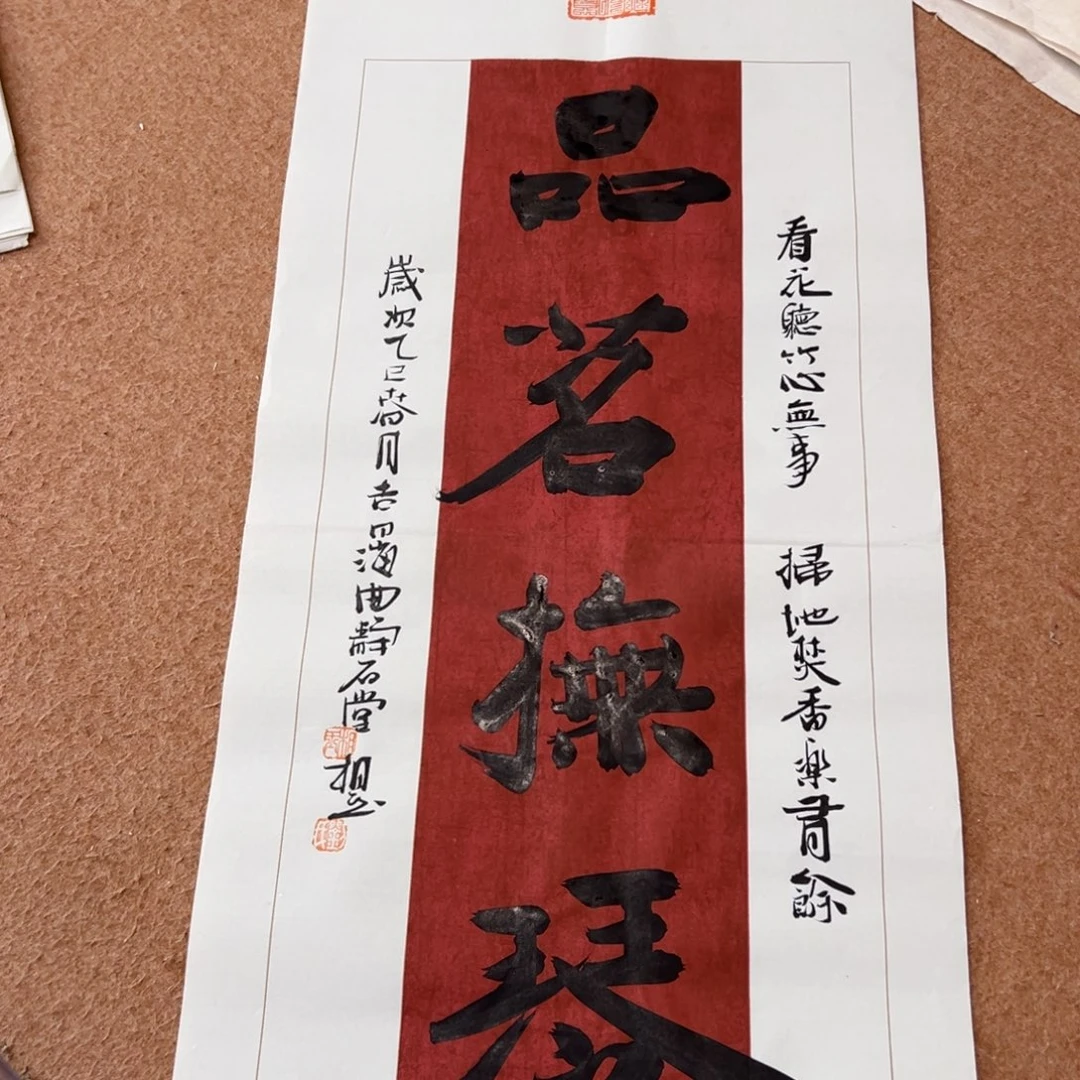 看花聽竹心無事 掃地焚香樂有餘
品茗撫琴
歲次乙巳春月吉日曲靜石堂